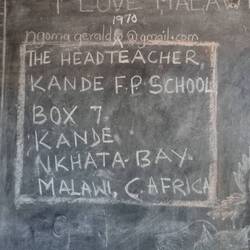 I LOVE MALAW
1970
ngoma gerald@gmail.com
THE HEADTEACHER,
KANDE F.P. SCHOOL
BOX 7.
KANDE
NKHATA-BAY.
MALAWI, C. AFRICA